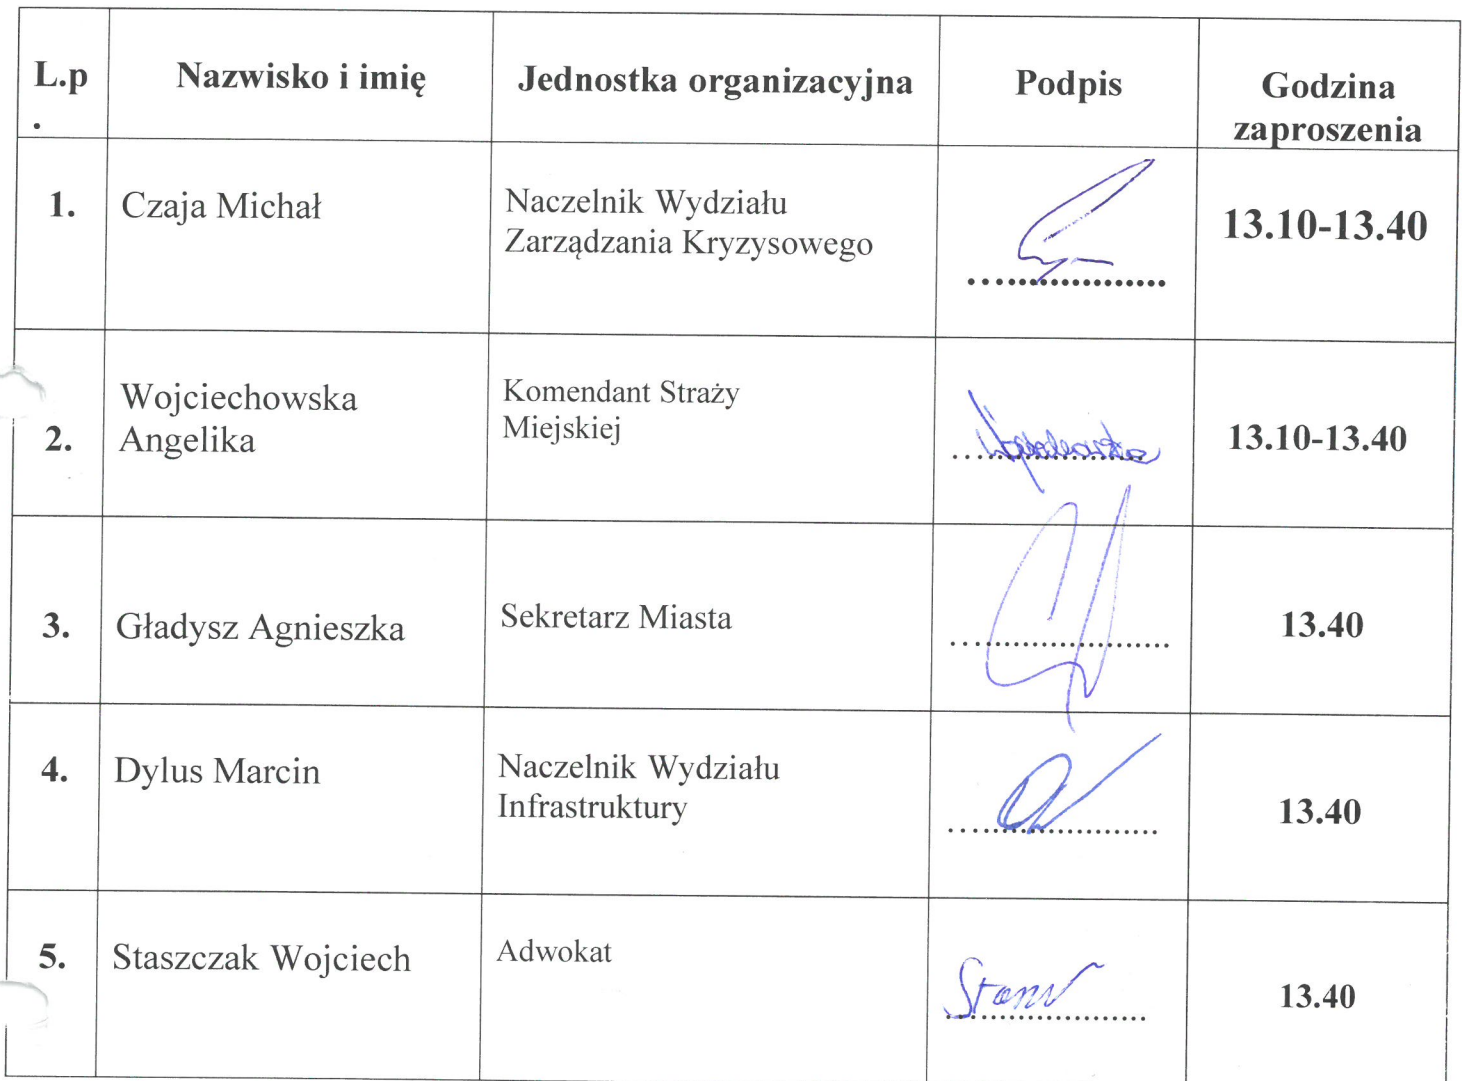 L.p
.
Nazwisko i imię
Jednostka organizacyjna
Podpis
Godzina
zaproszenia
1.
Czaja Michał
Naczelnik Wydziału
Zarządzania Kryzysowego
13.10-13.40
2.
Wojciechowska
Angelika
Komendant Straży
Miejskiej
13.10-13.40
3.
Gładysz Agnieszka
Sekretarz Miasta
13.40
4.
Dylus Marcin
Naczelnik Wydziału
Infrastruktury
13.40
5.
Staszczak Wojciech
Adwokat
13.40